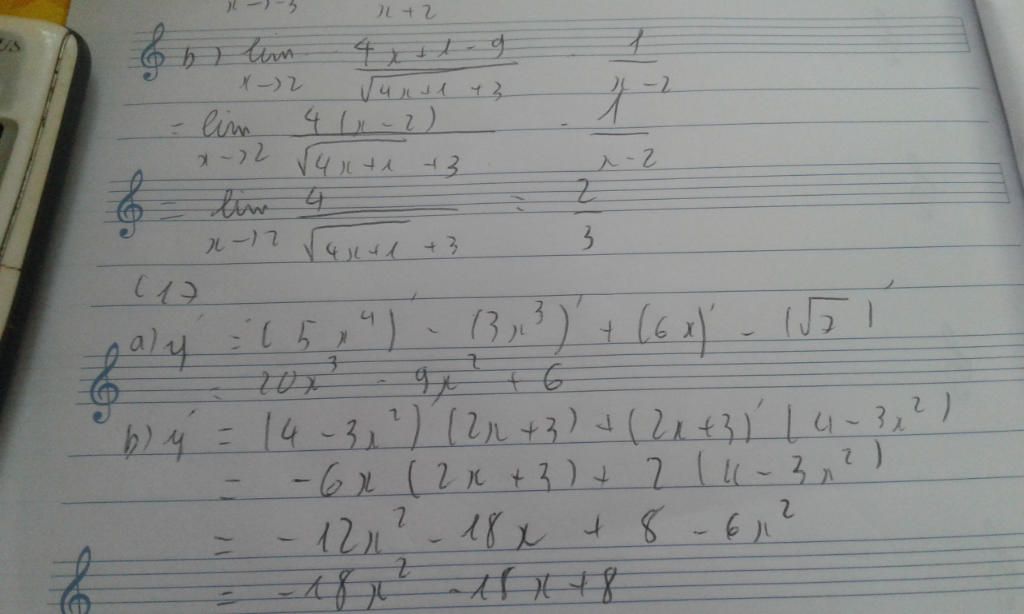 x→-3 x+2
b) lim 4x+1-9 / √4x+1 +3 · 1 / x-2
x→2
= lim 4(x-2) / √4x+1 +3 · 1 / x-2
x→2
= lim 4 / √4x+1 +3 = 2 / 3
x→2
C17
a) y' = (5x⁴)' - (3x³)' + (6x)' - (√7)'
= 20x³ - 9x² + 6
b) y' = (4-3x²)'(2x+3) + (2x+3)'(4-3x²)
= -6x(2x+3) + 2(4-3x²)
= -12x² - 18x + 8 - 6x²
= -18x² - 18x + 8